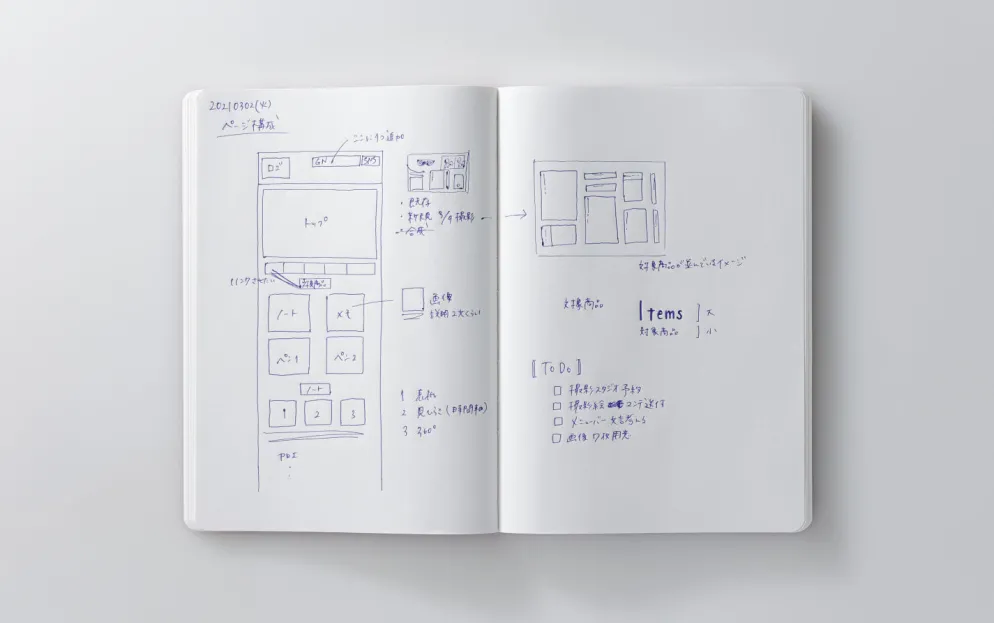 20210302(火)
ページ構成
ここに1つ追加
ロゴ
GN
SNS
トップ
・既存
・新規 3/9 撮影
リンクさせたい
対象商品
ノート
メモ
画像
説明 2文くらい
ペン1
ペン2
ノート
1
2
3
1 表紙
2 見ひらき
3 360°
対象商品が並んでいるイメージ
対象商品
Items
大
対象商品
小
[ To Do ]
□ 撮影スタジオ予約
□ 撮影絵コンテ送付
□ メニューバー 文言考える
□ 画像 7枚用意